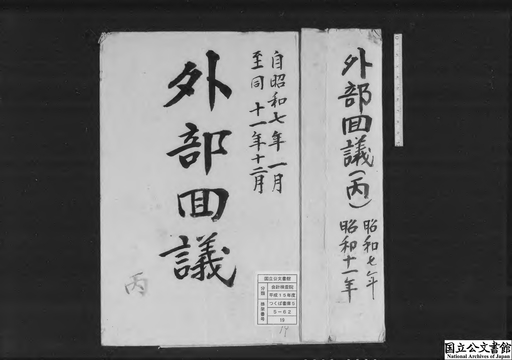 外部回議(丙)
昭和七年
昭和十一年
自昭和七年一月
至同十一年十二月
外部回議
丙
国立公文書館
分類
会計検査院
平成15年度
つくば書庫5
5-62
排架番号
19
19
国立公文書館
National Archives of Japan